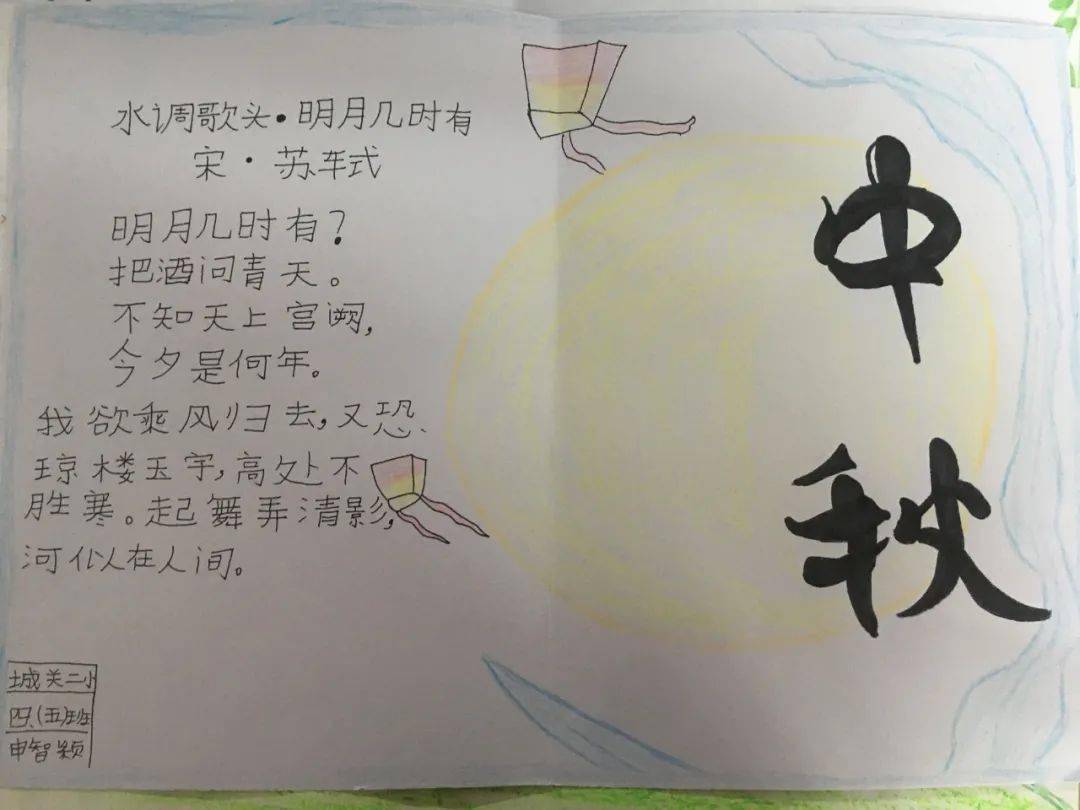 水调歌头·明月几时有
宋·苏轼
明月几时有?
把酒问青天。
不知天上宫阙,
今夕是何年。
我欲乘风归去,又恐、
琼楼玉宇,高处不
胜寒。起舞弄清影,
河似在人间。
中
秋
城关二小
四(五)班
申智颖